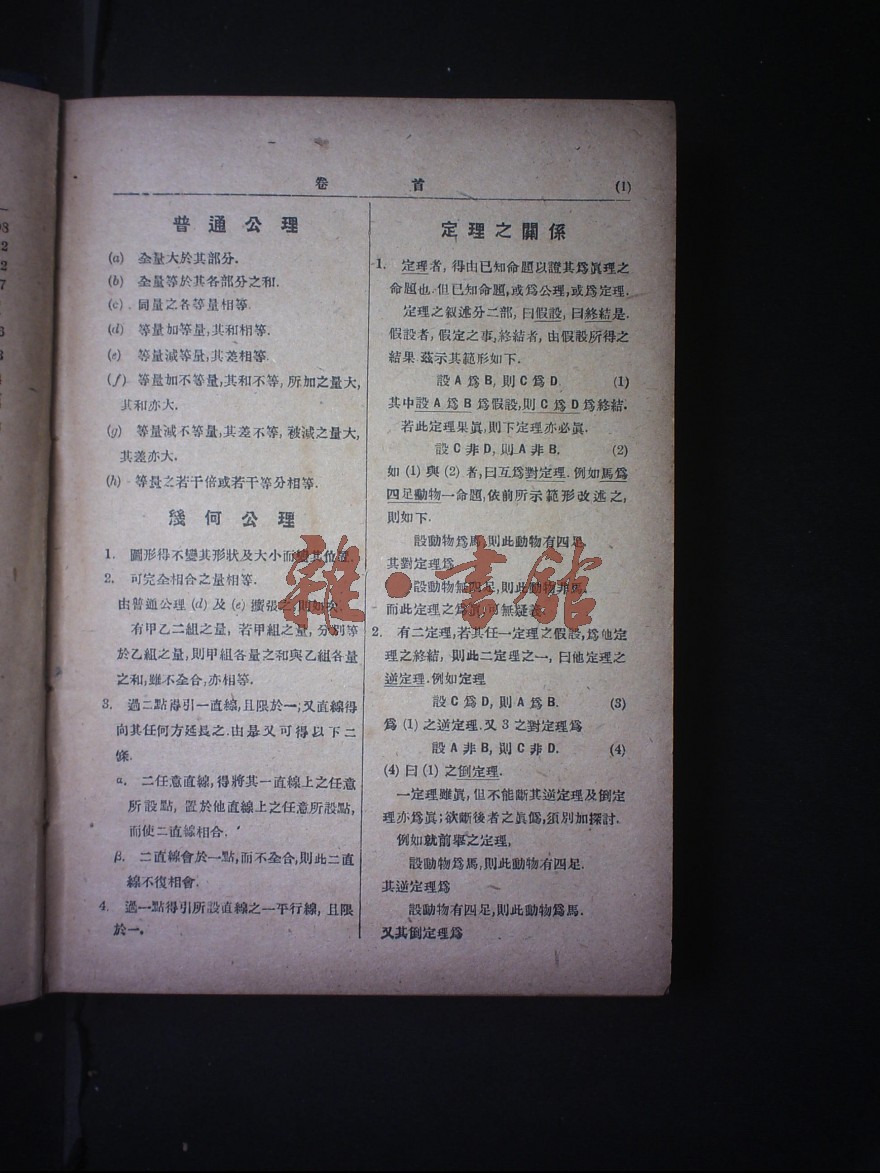 卷 首 (1)
普通公理
(a) 全量大於其部分.
(b) 全量等於其各部分之和.
(c) 同量之各等量相等.
(d) 等量加等量,其和相等.
(e) 等量減等量,其差相等.
(f) 等量加不等量,其和不等, 所加之量大,
其和亦大.
(g) 等量減不等量,其差不等, 被減之量大,
其差亦大.
(h) 等量之若干倍或若干等分相等.
幾何公理
1. 圖形得不變其形狀及大小而變其位置.
2. 可完全相合之量相等.
由普通公理 (d) 及 (e) 擴張之,則如次.
有甲乙二組之量, 若甲組之量, 分別等
於乙組之量,則甲組各量之和與乙組各量
之和,雖不全合,亦相等.
3. 過二點得引一直線,且限於一;又直線得
向其任何方延長之.由是又可得以下二
條.
α. 二任意直線,得將其一直線上之任意
所設點, 置於他直線上之任意所設點,
而使二直線相合.
β. 二直線會於一點,而不全合,則此二直
線不復相會.
4. 過一點得引所設直線之一平行線, 且限
於一.
定理之關係
1. 定理者, 得由已知命題以證其爲眞理之
命題也.但已知命題,或爲公理,或爲定理.
定理之叙述分二部, 曰假設, 曰終結是.
假設者, 假定之事,終結者, 由假設所得之
結果.茲示其範形如下.
設 A 爲 B, 則 C 爲 D. (1)
其中設 A 爲 B 爲假設,則 C 爲 D 爲終結.
若此定理果眞,則下定理亦必眞.
設 C 非 D, 則 A 非 B. (2)
如 (1) 與 (2) 者,曰互爲對定理. 例如馬爲
四足動物一命題,依前所示範形改述之,
則如下.
設動物爲馬,則此動物有四足.
其對定理爲
設動物無四足,則此動物非馬.
而此定理之爲眞,可無疑義.
2. 有二定理,若其任一定理之假設,爲他定
理之終結, 則此二定理之一, 曰他定理之
逆定理.例如定理
設 C 爲 D, 則 A 爲 B. (3)
爲 (1) 之逆定理.又 3 之對定理爲
設 A 非 B, 則 C 非 D. (4)
(4) 曰 (1) 之倒定理.
一定理雖眞, 但不能斷其逆定理及倒定
理亦爲眞;欲斷後者之眞僞,須別加探討.
例如就前舉之定理,
設動物爲馬,則此動物有四足.
其逆定理爲
設動物有四足,則此動物爲馬.
又其倒定理爲
雜·書館